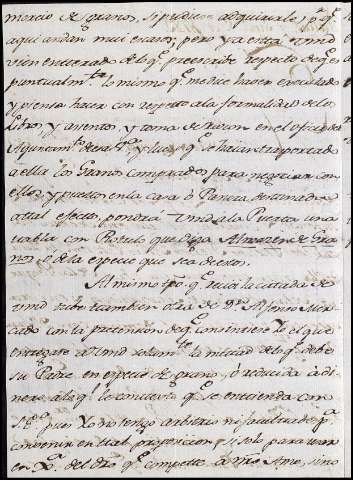 mercio de granos, si pudiese adquirirle; pr. qe.
aqui andan mui escasos; pero ya esta vmd
vien enterado de lo qe. prescribe respecto de qe. es
puntualmte. lo mismo qe. me dice haver executado
y piensa hacer con respecto a la formalidad de los
Libros, y asientos, y toma de razon en el oficio de
Ayuntamto. de esa y luego qe. se haian trasportado
a ella los Granos comprados para negociar con
ellos, y puestos en la casa ó Panera destinada
a tal efecto, pondrá Vmd a la Puerta una
tabla con Rotulo que diga Almazen de Gra-
nos, ó de la especie que sea de ellos.
Al mismo tpo. qe. recivi la citada de
vmd. tube tambien otra de Dn. Alfonso Mer-
cado con la pretension de qe. consintiere Yo el que
entregase a Vmd solamte. la mitad de lo qe. debe
su Padre en especie de grano, ó reducida a di-
nero, a lo qe. le contexto qe. se entienda con
pues Yo no tengo arbitrio ni facultades pa.
convenir en tal proposicion, y si solo para usar
en del dro. qe. compete a mi Amo, sino